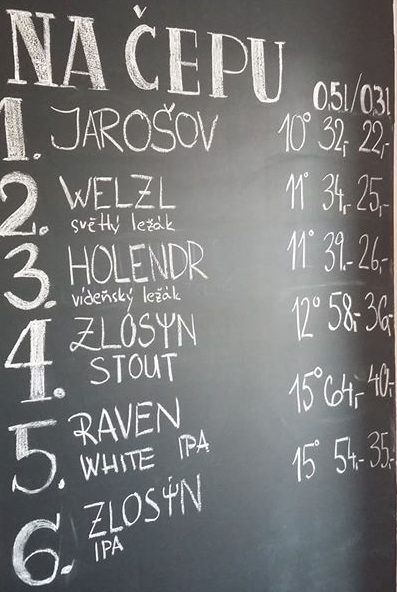 NA ČEPU 0,5l/0,3l
1. JAROŠOV 10° 32,- 22,-
2. WELZL 11° 34,- 25,-
světlý ležák
3. HOLENDR 11° 39.- 26,-
vídeňský ležák
4. ZLOSYN 12° 58,- 36,-
STOUT
5. RAVEN 15° 64,- 40,-
WHITE IPA
6. ZLOSYN 15° 54,- 35,-
IPA